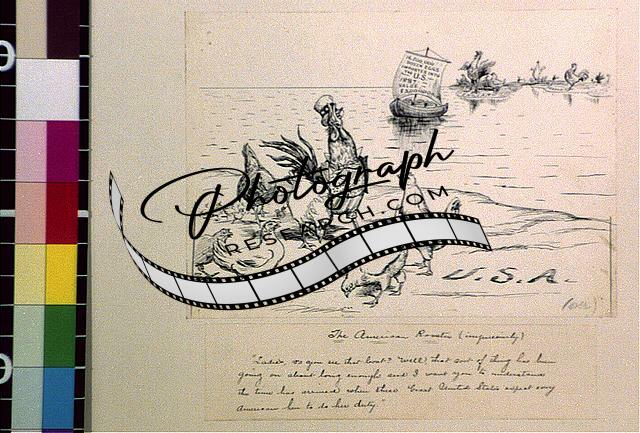 DOZEN EGGS
IMPORTED INTO
THE U.S.
VALUE
Photograph
RESEARCH.COM
U.S.A.
(over)
The American Rooster (impressively)
"Ladies, do you see that boat? Well! that sort of thing has been
going on about long enough and I want you to understand
the time has arrived when these Great United States expect every
American hen to do her duty."